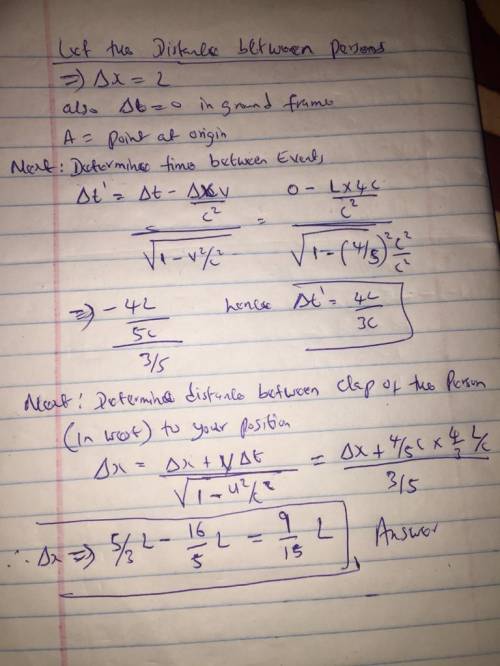 Let the Distance between Persons
=> Δx = L
also Δt = 0 in ground frame
A = point at origin
Next: Determine time between Events
Δt' = (Δt - Δx v/c²) / √(1 - v²/c²) = (0 - L x 4c/c²) / √(1 - (4/5)² c²/c²)
=> (-4L/5c) / (3/5) hence Δt' = 4L/3c
Next: Determine distance between clap of the Person
(in west) to your position
Δx = (Δx + v Δt) / √(1 - u²/c²) = (Δx + 4/5 c x 4/3 L/c) / (3/5)
∴ Δx => 5/3 L - 16/5 L = 9/15 L Answer